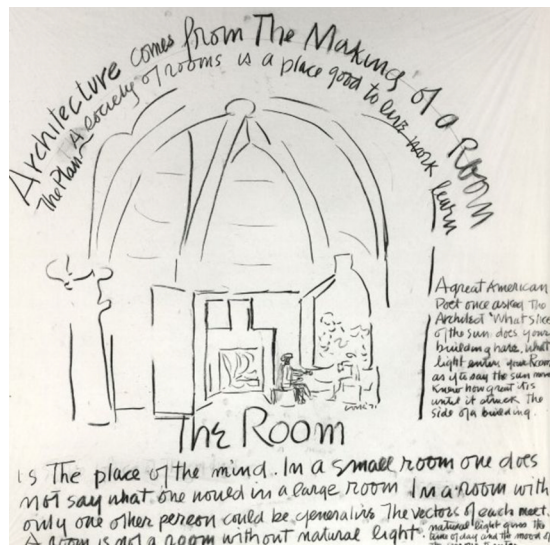 Architecture comes from The Making of a Room
The Plan A society of rooms is a place good to live work learn
A great American
Poet once asked The
Architect "What slice
of the sun does your
building have, what
light enters your Room
as if to say the sun never
knew how great it is
until it struck the
side of a building.
The Room
is The place of the mind. In a small room one does
not say what one would in a large room In a room with
only one other person could be generative The vectors of each meet.
A room is not a room without natural light
natural light gives the
time of day and the mood of